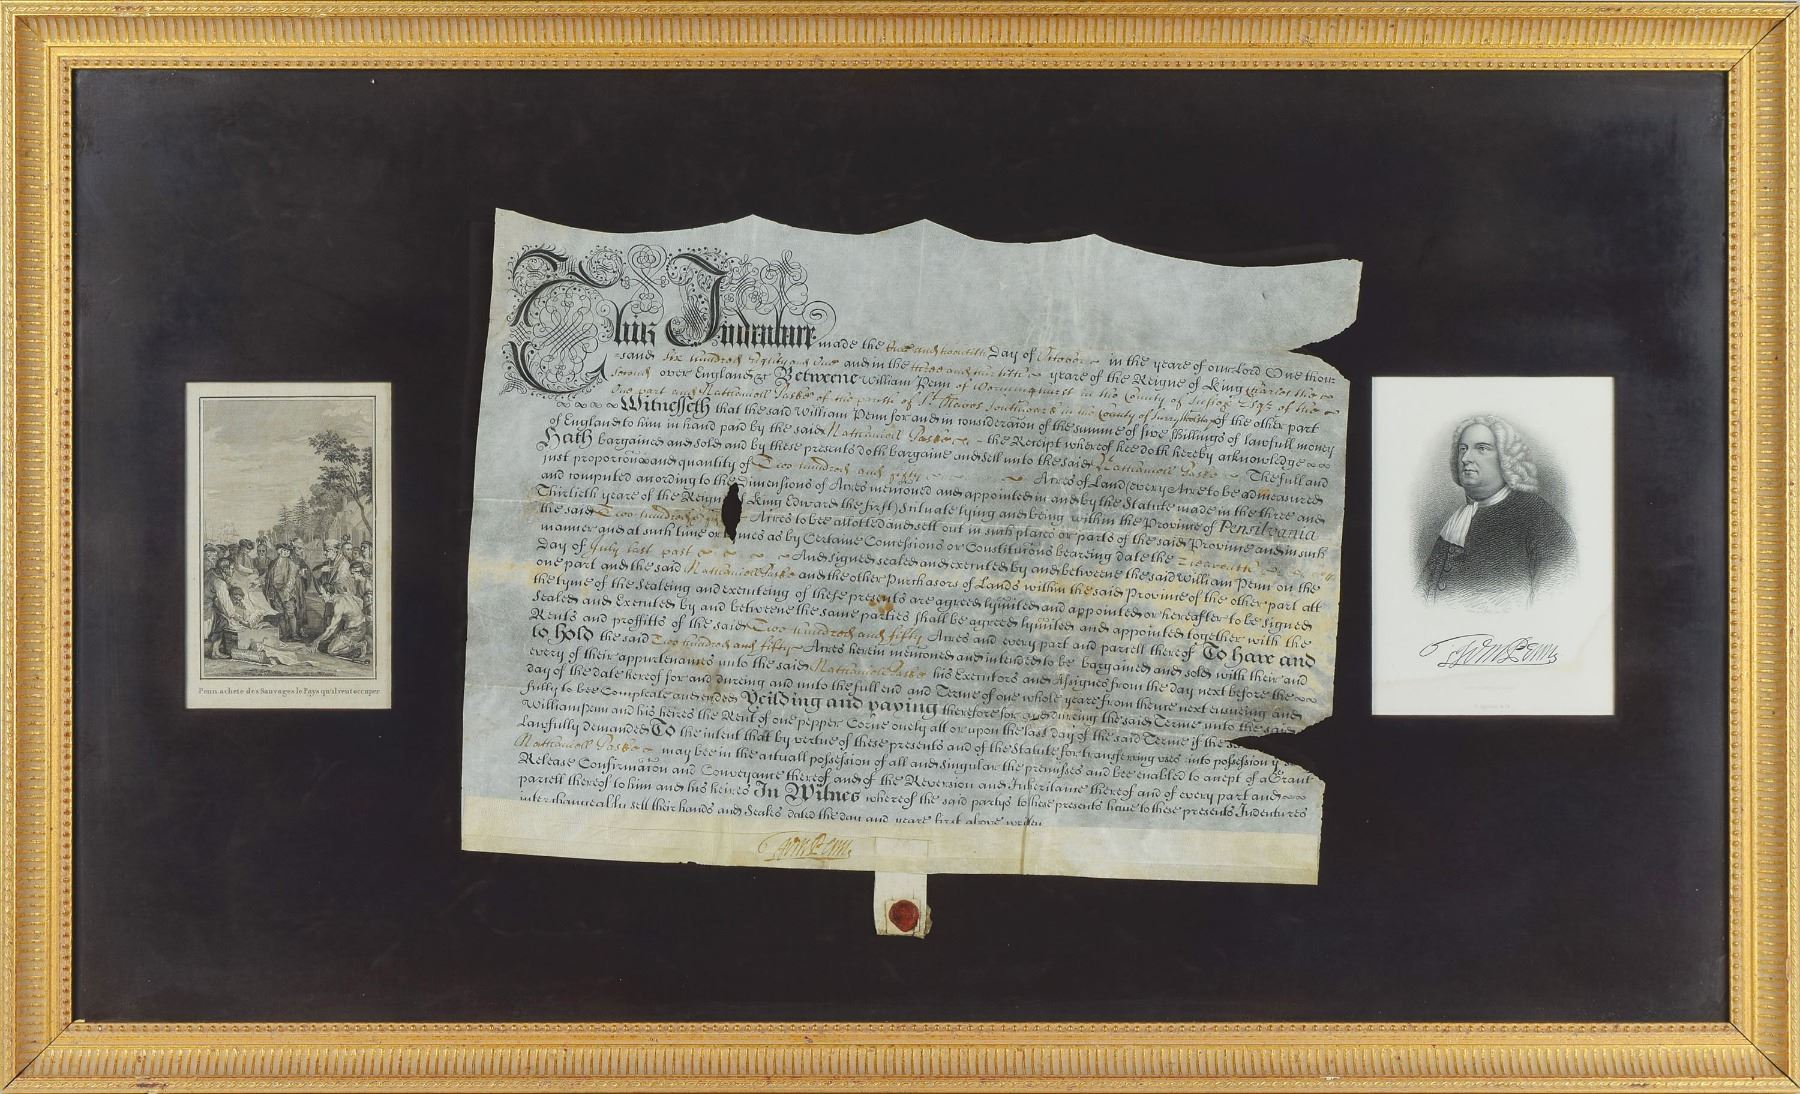 Penn achete des Sauvages le Pays qu'il veut occuper
This Indenture made the Day of October in the yeare of our Lord One thou-
sand six hundred Eighty and One and in the three and thirtith yeare of the Reigne of King Charles the
second over England &c Betweene William Penn of Worminghurst in the County of Sussex Esqr of the
one part and Nathaniell Paske of the parish of St Olaves Southwark in the County of Surry of the other part
Witnesseth that the said William Penn for and in consideraton of the summe of five shillings of lawfull money
of England to him in hand paid by the said Nathaniell Paske the Receipt whereof hee doth hereby acknowledge
Hath bargained and sold and by these presents doth bargaine and sell unto the said Nathaniell Paske The full and
just proporton and quantity of Two hundred and fifty Acres of Land (every Acre to be admeasured
and computed according to the Dimensions of Acres mentioned and appointed in and by the Statute made in the three and
Thirtieth yeare of the Reigne of King Edward the first) Situate lying and being within the Province of Pensilvania
the said Two hundred Acres to bee allotted and sett out in such places or parts of the said Province and in such
manner and at such time or times as by Certaine Concessions or Constitutions bearing date the Eleaventh
Day of July last past And signed sealed and executed by and betweene the said William Penn on the
one part and the said Nathaniell Paske and the other Purchasors of Lands within the said Province of the other part att
the tyme of the Sealeing and executeing of these presents are agreed lymited and appointed or hereafter to be signed
Sealed and Executed by and betweene the same parties shall be agreed lymited and appointed together with the
Rents and proffitts of the said Two hundred and fifty Acres and every part and parcell thereof To have and
to hold the said Two hundred and fifty Acres herein mentioned and intended to be bargained and sold with their and
every of their appurtenances unto the said Nathaniell Paske his Executors and Assignes from the day next before the
day of the date hereof for and dureing and unto the full end and Terme of one whole yeare from thence next ensueing and
fully to bee Compleate and ended Yeilding and paying therefore for and dureing the said Terme unto the said
William Penn and his heires the Rent of one pepper Corne onely att or upon the last day of the said Terme if the same
Lawfully demanded To the intent that by vertue of these presents and of the Statute for transferring uses into possession
Nathaniell Paske may bee in the actuall possession of all and singular the premisses and bee enabled to accept of a Grant
Release Confirmaton and Conveyance thereof and of the Reversion and Inheritance thereof and of every part and
parcell thereof to him and his heires In Witnes whereof the said partys to these presents have to these presents Indentures
interchangeably sett their hands and Seales dated the day and yeare first above written
Wm Penn
Wm Penn